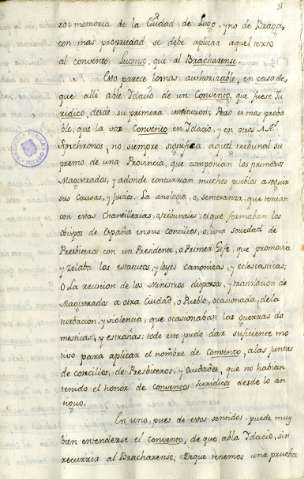 zo: memoria de la Ciudad de Lugo, y no de Braga,
con mas propriedad se debe aplicar aquel texto
al convento Lucense, que al Bracharense.
Esto parece lo mas authorizable, en caso de
que allí able Idacio de un Convento, que fuese Ju
ridico, desde su primera institucion; Pero es mas proba
ble, que la voz Convento en Idacio, y en otros A.A.
Synchronos, no siempre significa aquel tribunal su
premo de una Provincia, que componian los primeros
Magistrados, y adonde concurrian muchos pueblos a seguir
sus Causas, y juicios. La analogia, o semejanza, que tenian
con estas Chancillerias, o tribunales: el que formaban los
Obispos de España en sus concilios, o una sociedad de
Presbiteros con un Presidente, o Primer Gefe, que promovia
y zelaba los estatutos, y leyes canonicas, y eclesiasticas;
O la reunion de los Ministros dispersos, y translacion de
Magistrados a otra Ciudad, o Pueblo, ocasionada, de la
turbacion, y violencia, que ocasionaban las guerras do
mesticas, y estrañas: todo esto pudo dar suficiente mo
tivo para aplicar el nombre de convento, a las juntas
de concilios, de Presbiteros, y Ciudades, que no habian
tenido el honor de conventos Juridicos desde lo an
tiguo.
En uno, pues de estos sentidos puede muy
bien entenderse el convento, de que abla Idacio, sin
recurrir al Bracharense; Porque tenemos una prueba